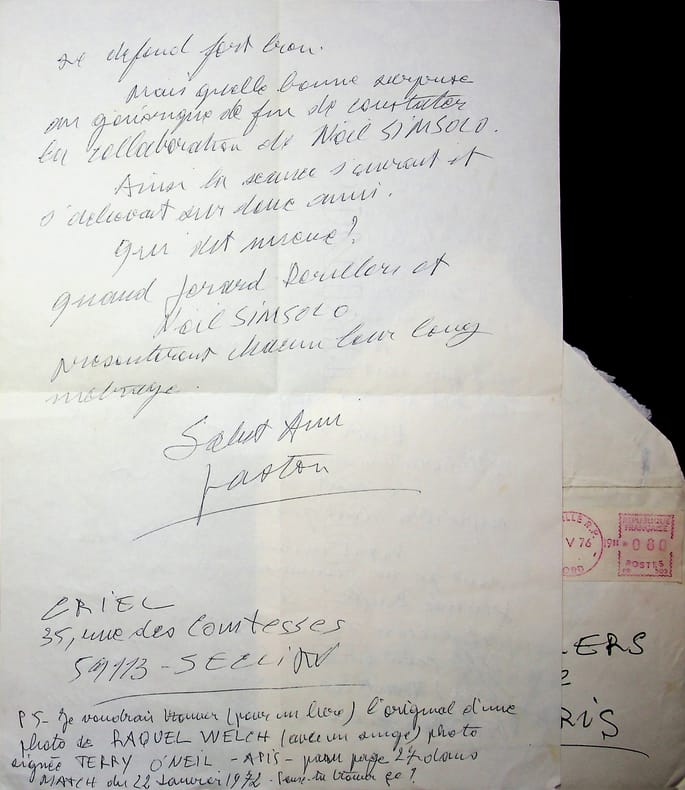 se defend fort bien.
Mais quelle bonne surprise
au générique de fin de constater
la collaboration de Noël SIMSOLO.
Ainsi la séance s'ouvrait et
s'achevait sur deux amis.
Qui dit mieux?
Quand Gérard et
Noël SIMSOLO
présenteront chacun leur long
métrage.
Salut Ami
Gaston
CRIEL
35, rue des Comtesses
59113 - SECLIN
PS - Je voudrais trouver (pour un livre) l'original d'une
photo de RAQUEL WELCH (avec un singe) photo
signée TERRY O'NEIL - APIS - parue page 27 dans
MATCH du 22 Janvier 1972 - Peux-tu trouver ça?
LLE R.P.
V 76
ORD
19H
REPUBLIQUE
FRANÇAISE
080
POSTES
LERS
RIS